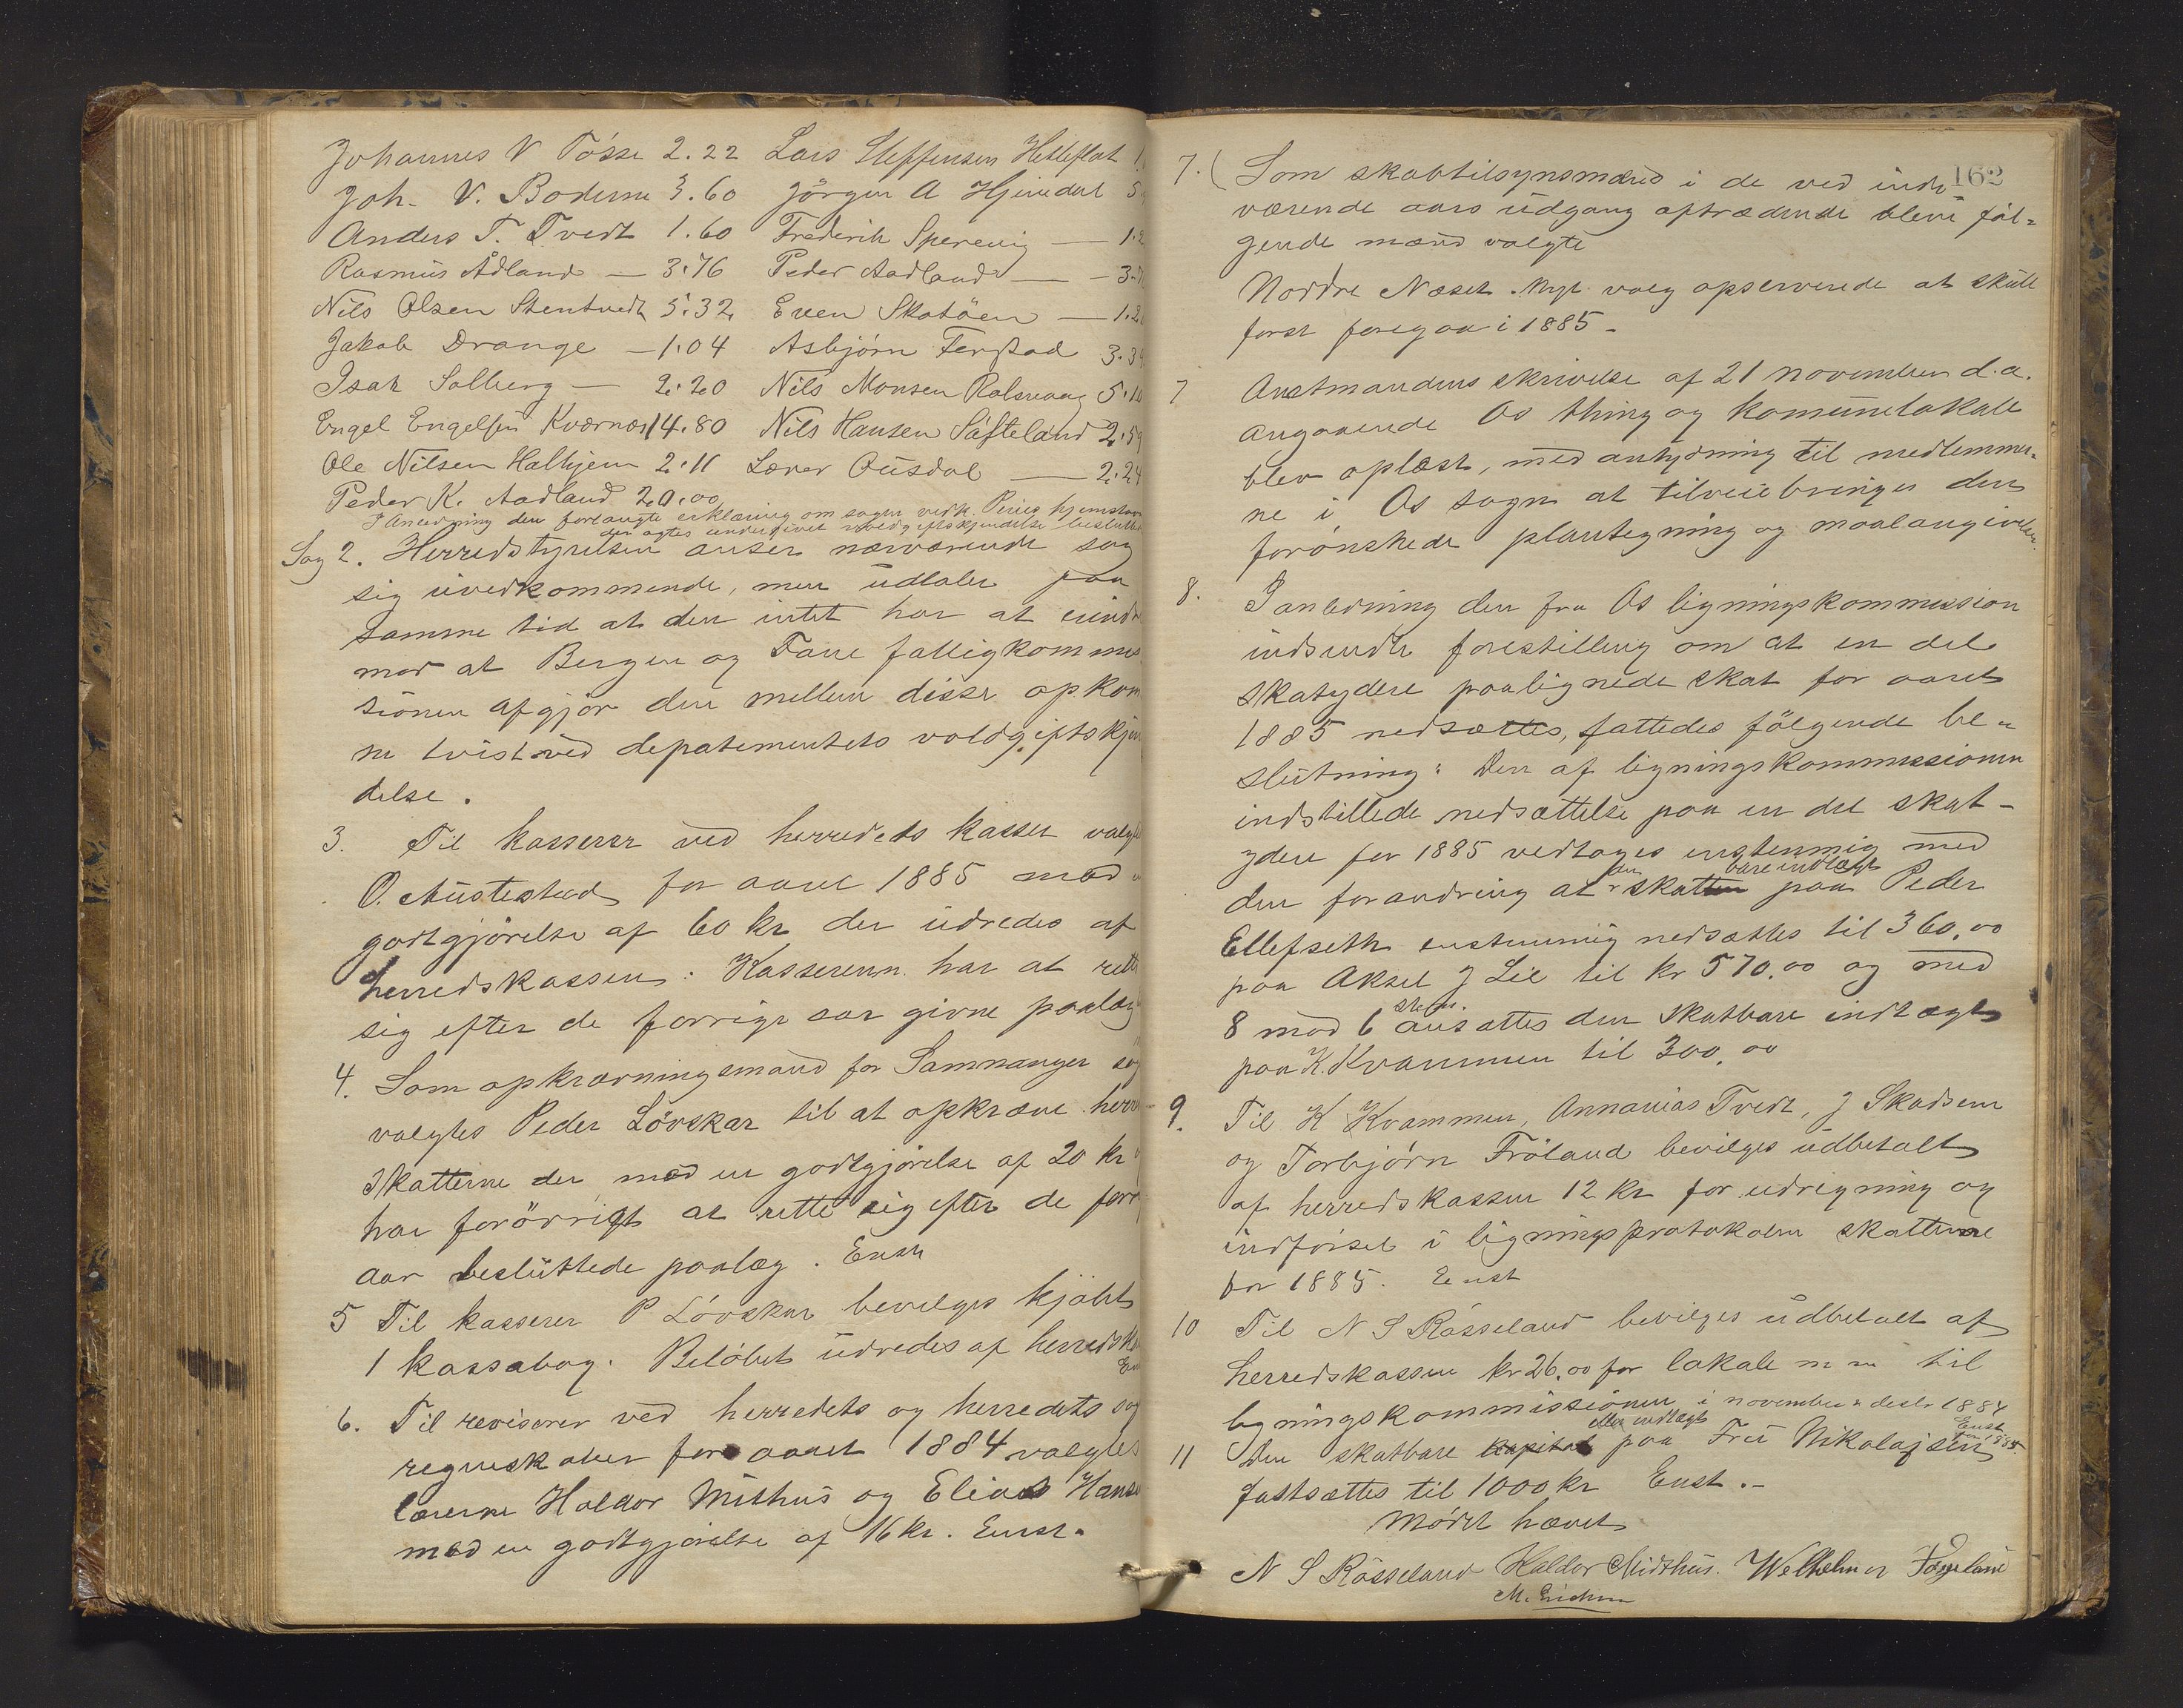 Johannes V Tösse 2.22 Lars Steffensen Hetleflot 1
Joh. V. Boderne 3.60 Jörgen A Hjeinedal 5
Anders T. Tvedt 1.60 Frederik Sperevig — 1.2
Rasmus Ådland — 3.76 Peder Aadland — 3.
Nils Olsen Stentvedt 5.32 Even Skotöen — 1.2
Jakob Drange — 1.04 Asbjørn Ferstad 3.3
Isak Solberg — 2.20 Nils Monsen Rolsvaag 5.10
Engel Engelsen Kværnæs 14.80 Nils Hansen Söfteland 2.59
Ole Nilsen Halhjem 2.11 Lærer Ousdal — 2.24
Peder K. Aadland 20.00
I Anledning den forlangte erklæring om sagen vedk. hjemstavn
der agtes undergivet voldgiftskjendelse besluttet
Sag 2. Herredstyrelsen anser nærværende sag
sig uvedkommende, men udtaler paa
samme tid at den intet har at eindr
mod at Bergen og Fane fattigkommis
sionen afgjør den mellem disse opkom
ne tvist ved depatementets voldgiftskjen
delse.
3. Til kasserer ved herredets kasser valgtes
O. Mustestad for aaret 1885 mod
godtgjörelse af 60 kr der udredes af
herredskassen. Kassereren har at rette
sig efter de forrige aar givne paalæg
4. Som opkrævningsmand for Samnanger sog
valgtes Peder Lövskar til at opkræve herre
skatterne der mod en godtgjörelse af 20 kr
har forövrigt at rette sig efter de forr
aar besluttede paalæg. Enst
5 Til kasserer P Lövskar bevilges kjøbt
1 kassabog. Belöbet udredes af herredska
En
6. Til revisorer ved herredets og herredets sog
regnskaber for aaret 1884 valgtes
lærerne Haldor Mithus og Elias Hans
mod en godtgjörelse af 16 kr. Enst.
162
7. ( Som skabtilsynsmænd i de ved inde
værende aars udgang aftrædende bleve föl=
gende mænd valgte
Nordre Næset. Nyt valg opserverede at skulle
først foregaa i 1885 -
7 Amtmandens skrivelse af 21 november d.a.
angaaende Os thing og komunelokale
blev oplæst, med antydning til medlemmer=
ne i Os sogn at tilveiebringe den
forönskede plantegning og maalangivelse.
8. I anledning den fra Os ligningskommission
indsendte forestilling om at en del
skatydere paalignede skat for aaret
1885 nedsættes, fattedes fölgende be=
slutning: Den af ligningskommissionen
indstillede nedsættelse paa en del skat-
ydere for 1885 vedtoges enstemmig med
den bare indtægt
den forandring at skatten paa Peder
Ellefseth enstemmig nedsættes til 360,00
paa Aksel J Lie til kr 570,00 og med
stem.
8 mod 6 ansattes den skatbare indtægt
paa K. Kvammen til 300,00
9. Til K Kvammen, Annanias Tvedt, J Skadsem
og Torbjörn Fröland bevilges udbetalt
af herredskassen 12 kr for udregning og
indförsel i ligningsprotokolen skatterne
for 1885. Enst
10 Til N S Rösseland bevilges udbetalt af
herredskassen kr 26,00 for lokale m m til
ligningskommissionen i november & desbr 1884
Enst
11 Den skatbare kapital eller indtægt paa Fru Nikolajsen for 1885
fastsættes til 1000 kr Enst. -
Mödet hævet
N S Rösseland Haldor Midthus. Welhelm
M. Erichsen